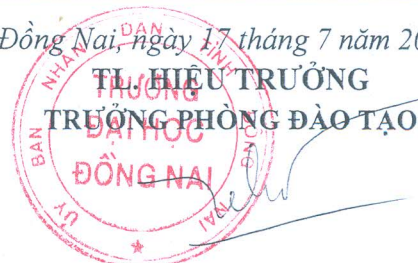 Đồng Nai, ngày 17 tháng 7 năm 20
TL. HIỆU TRƯỞNG
TRƯỞNG PHÒNG ĐÀO TẠO
ỦY BAN NHÂN DÂN TỈNH ĐỒNG NAI
TRƯỜNG
ĐẠI HỌC
ĐỒNG NAI